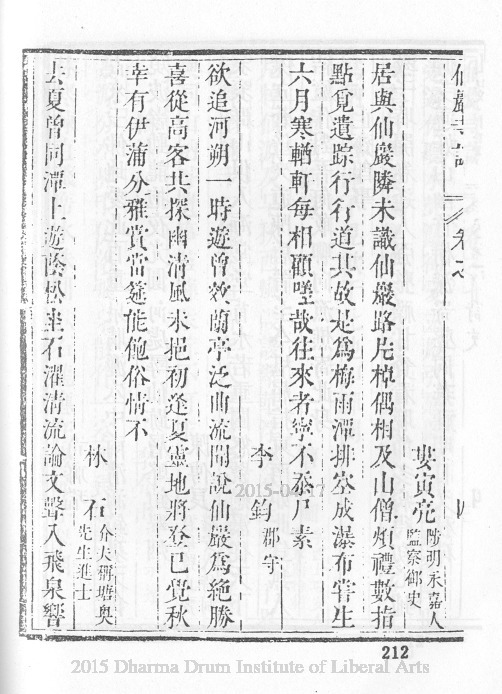 婁寅亮 陟明永嘉人
監察御史
居與仙巖隣未識仙巖路片棹偶相及山僧煩禮數指
點覓遺踪行行道其故是爲梅雨潭排空成瀑布嘗生
六月寒輶軒每相顧墜哉往來者寧不忝尸素
李 鈞 郡守
欲追河朔一時遊曾效蘭亭泛曲流聞說仙巖爲絕勝
喜從高客共探幽清風未挹初逢夏靈地將登已覺秋
幸有伊蒲分雅賞當筵能俗情不
林 石 介夫號塘奥
先生進士
去夏曾同潭上遊蔭松坐石濯清流論文聲入飛泉響
212
2015-04-17
2015 Dharma Drum Institute of Liberal Arts